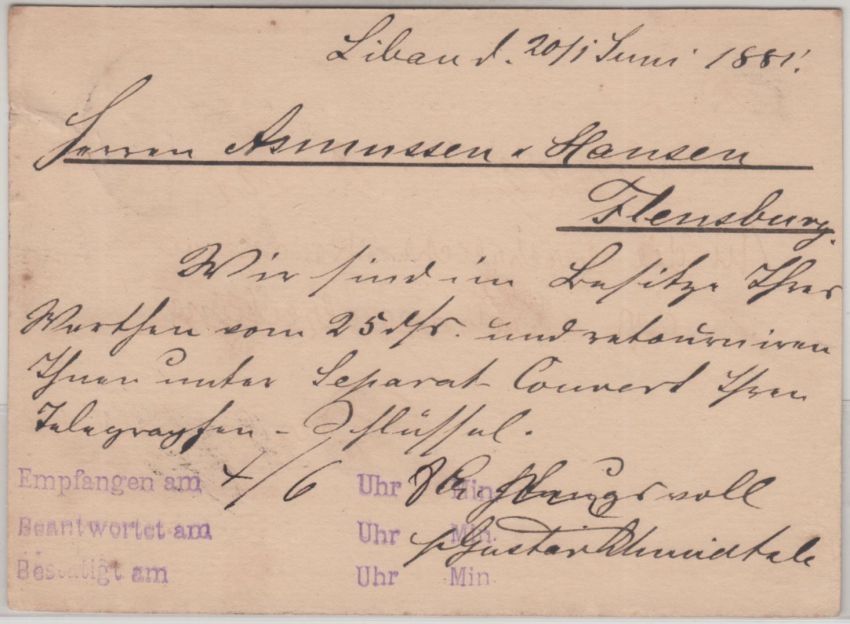 Libau d. 20/1 Juni 1881.
Herren Asmussen & Hansen
Flensburg.
Wir sind im Besitze Ihres
Werthen vom 25 d/s. und retourniren
Ihnen unter Separat-Couvert Ihren
Telegraphen-Schlüssel.
Empfangen am 4/6 Uhr 8 Min
Beantwortet am Uhr Min.
Bestätigt am Uhr Min
Gustav